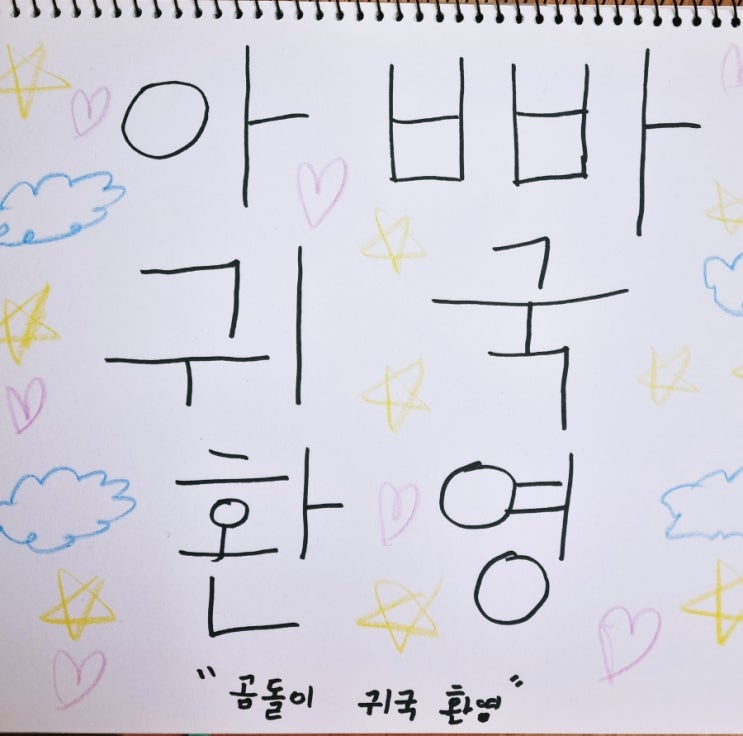 아빠
귀국
환영
"곰돌이 귀국 환영"